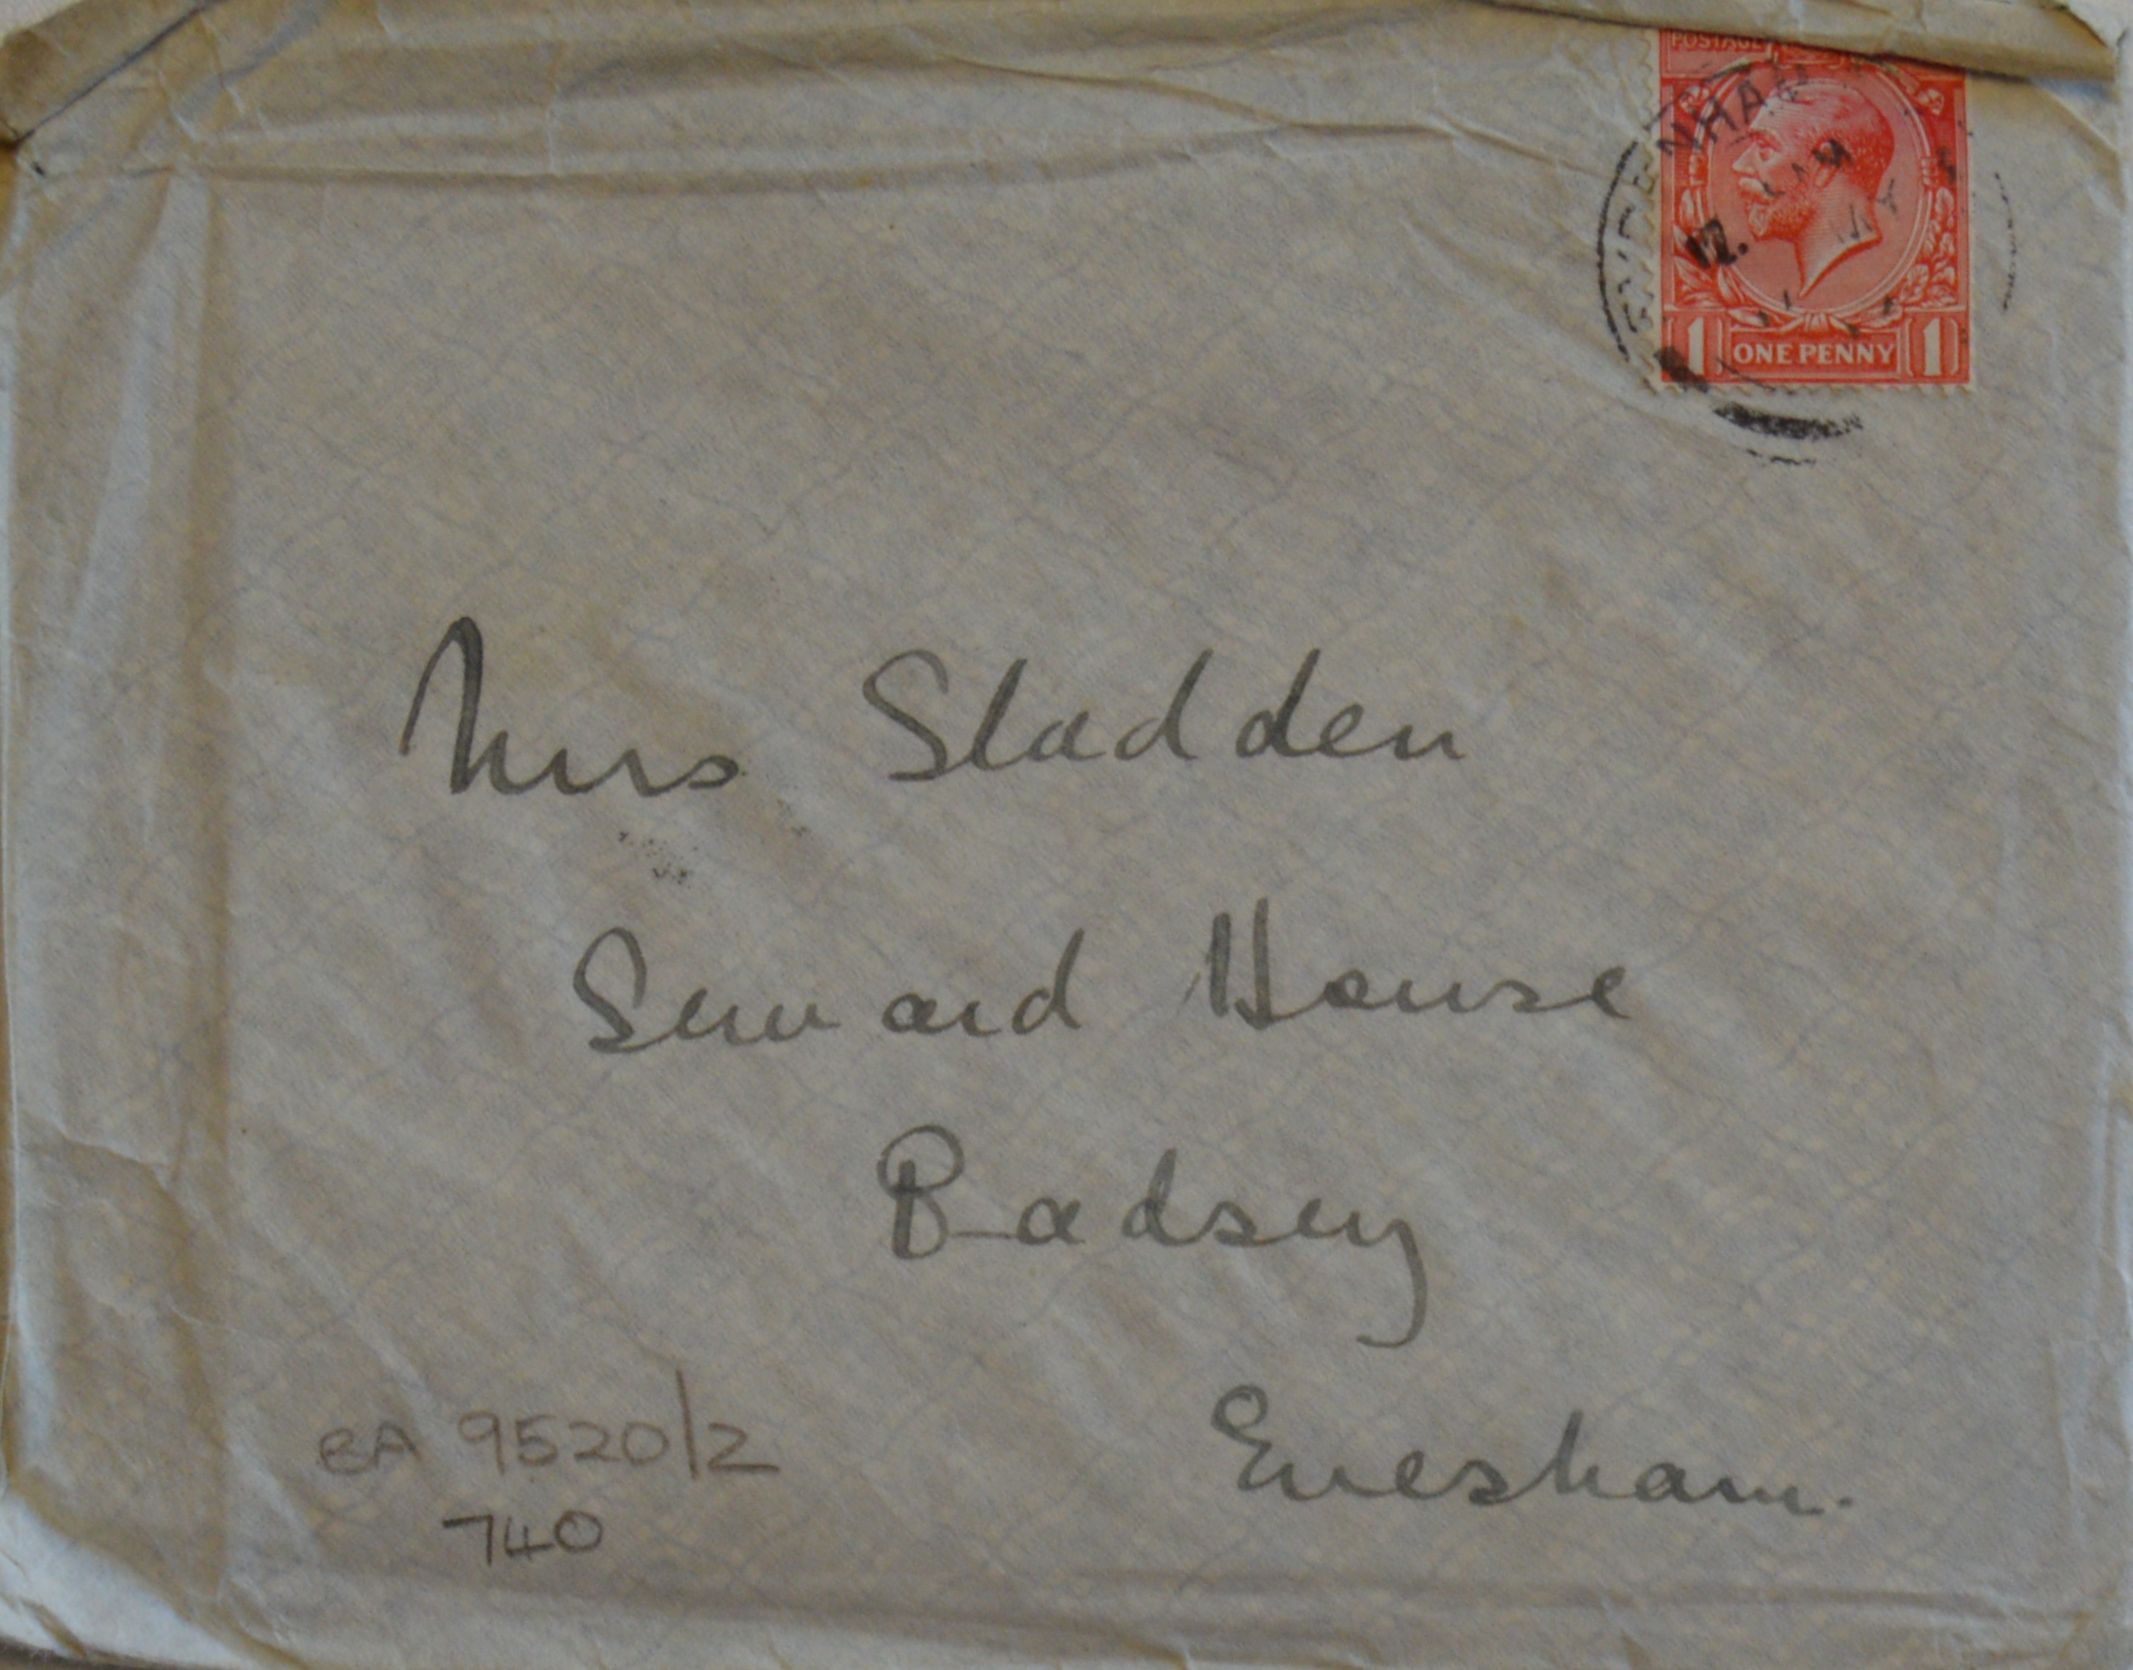 POSTAGE
SYDENHAM
AM
12.
MY
1 ONE PENNY 1
Mrs Sladden
Seward House
Badsey
Evesham.
BA 9520/2
740